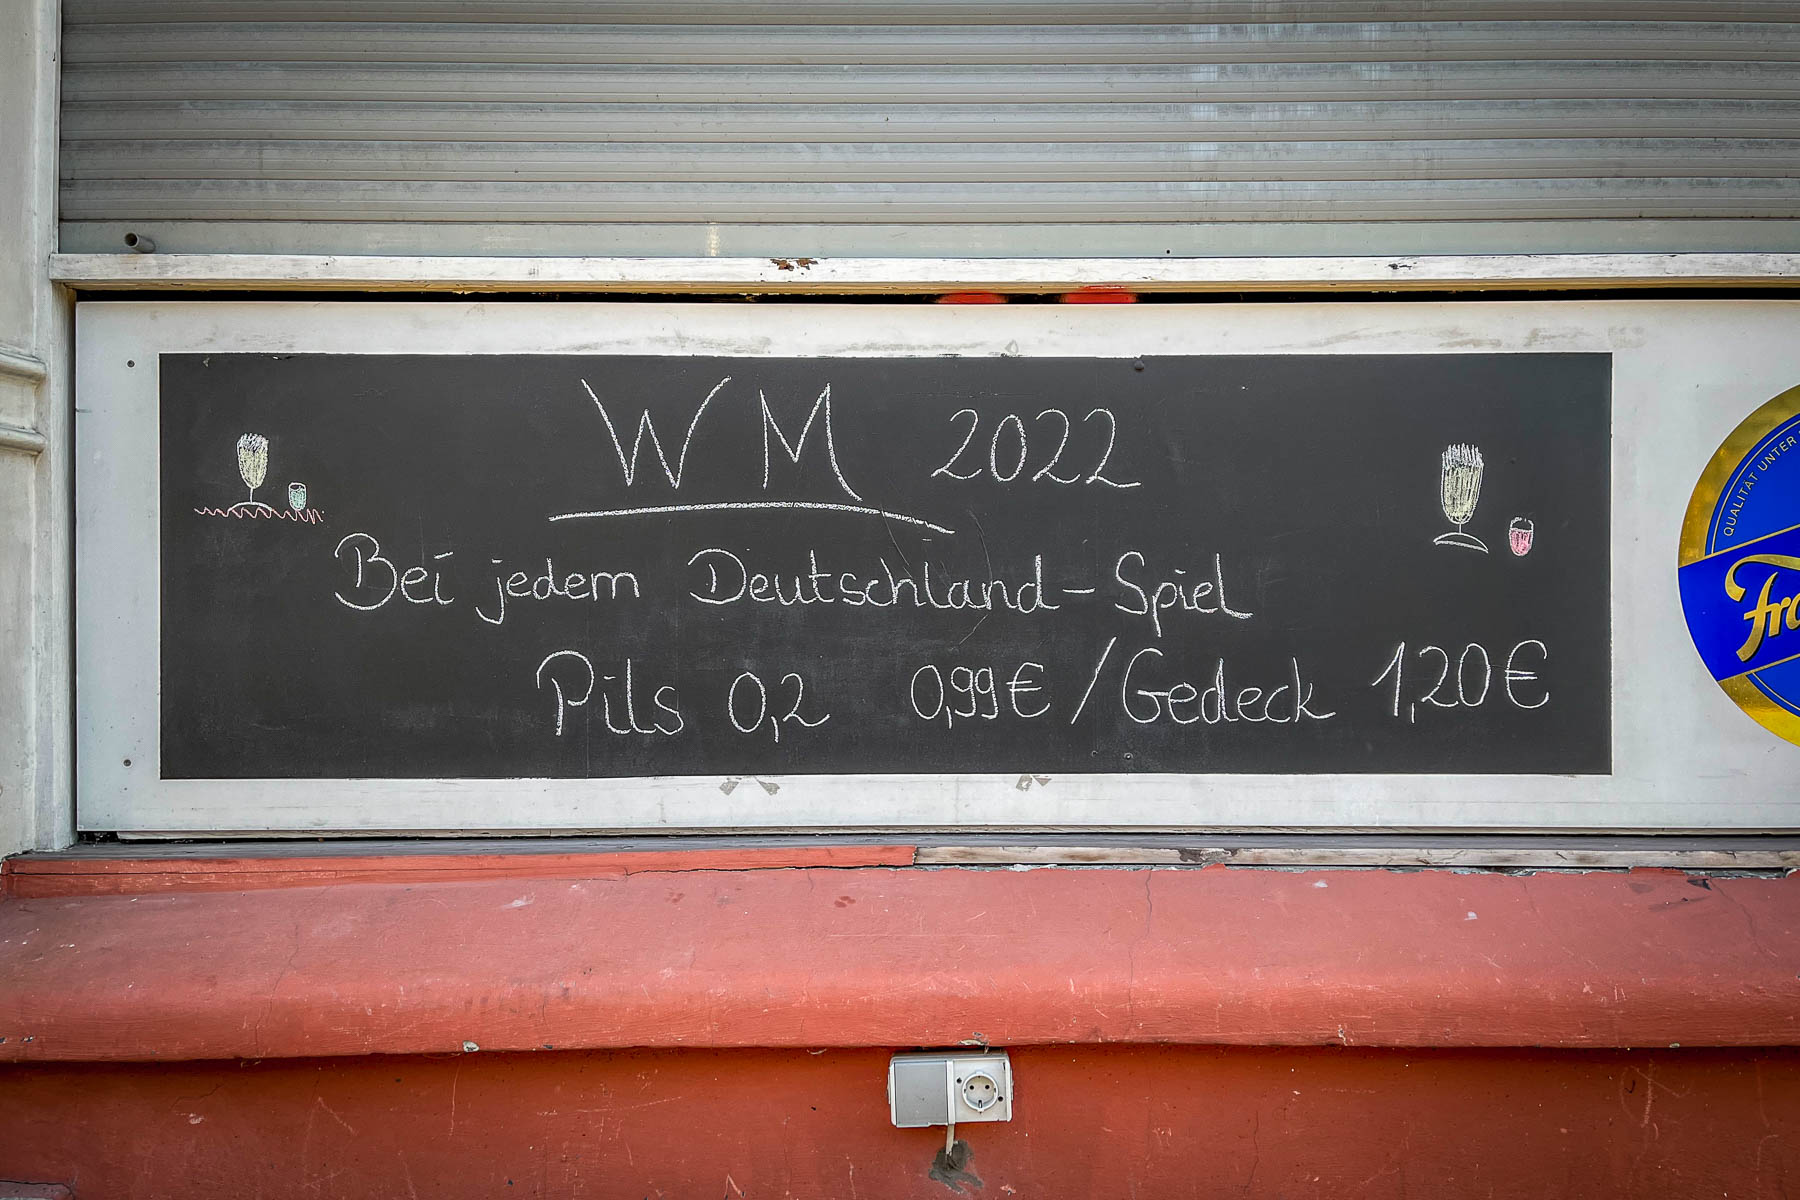 WM 2022
Bei jedem Deutschland-Spiel
Pils 0,2 0,99€ / Gedeck 1,20€
QUALITÄT UNTER